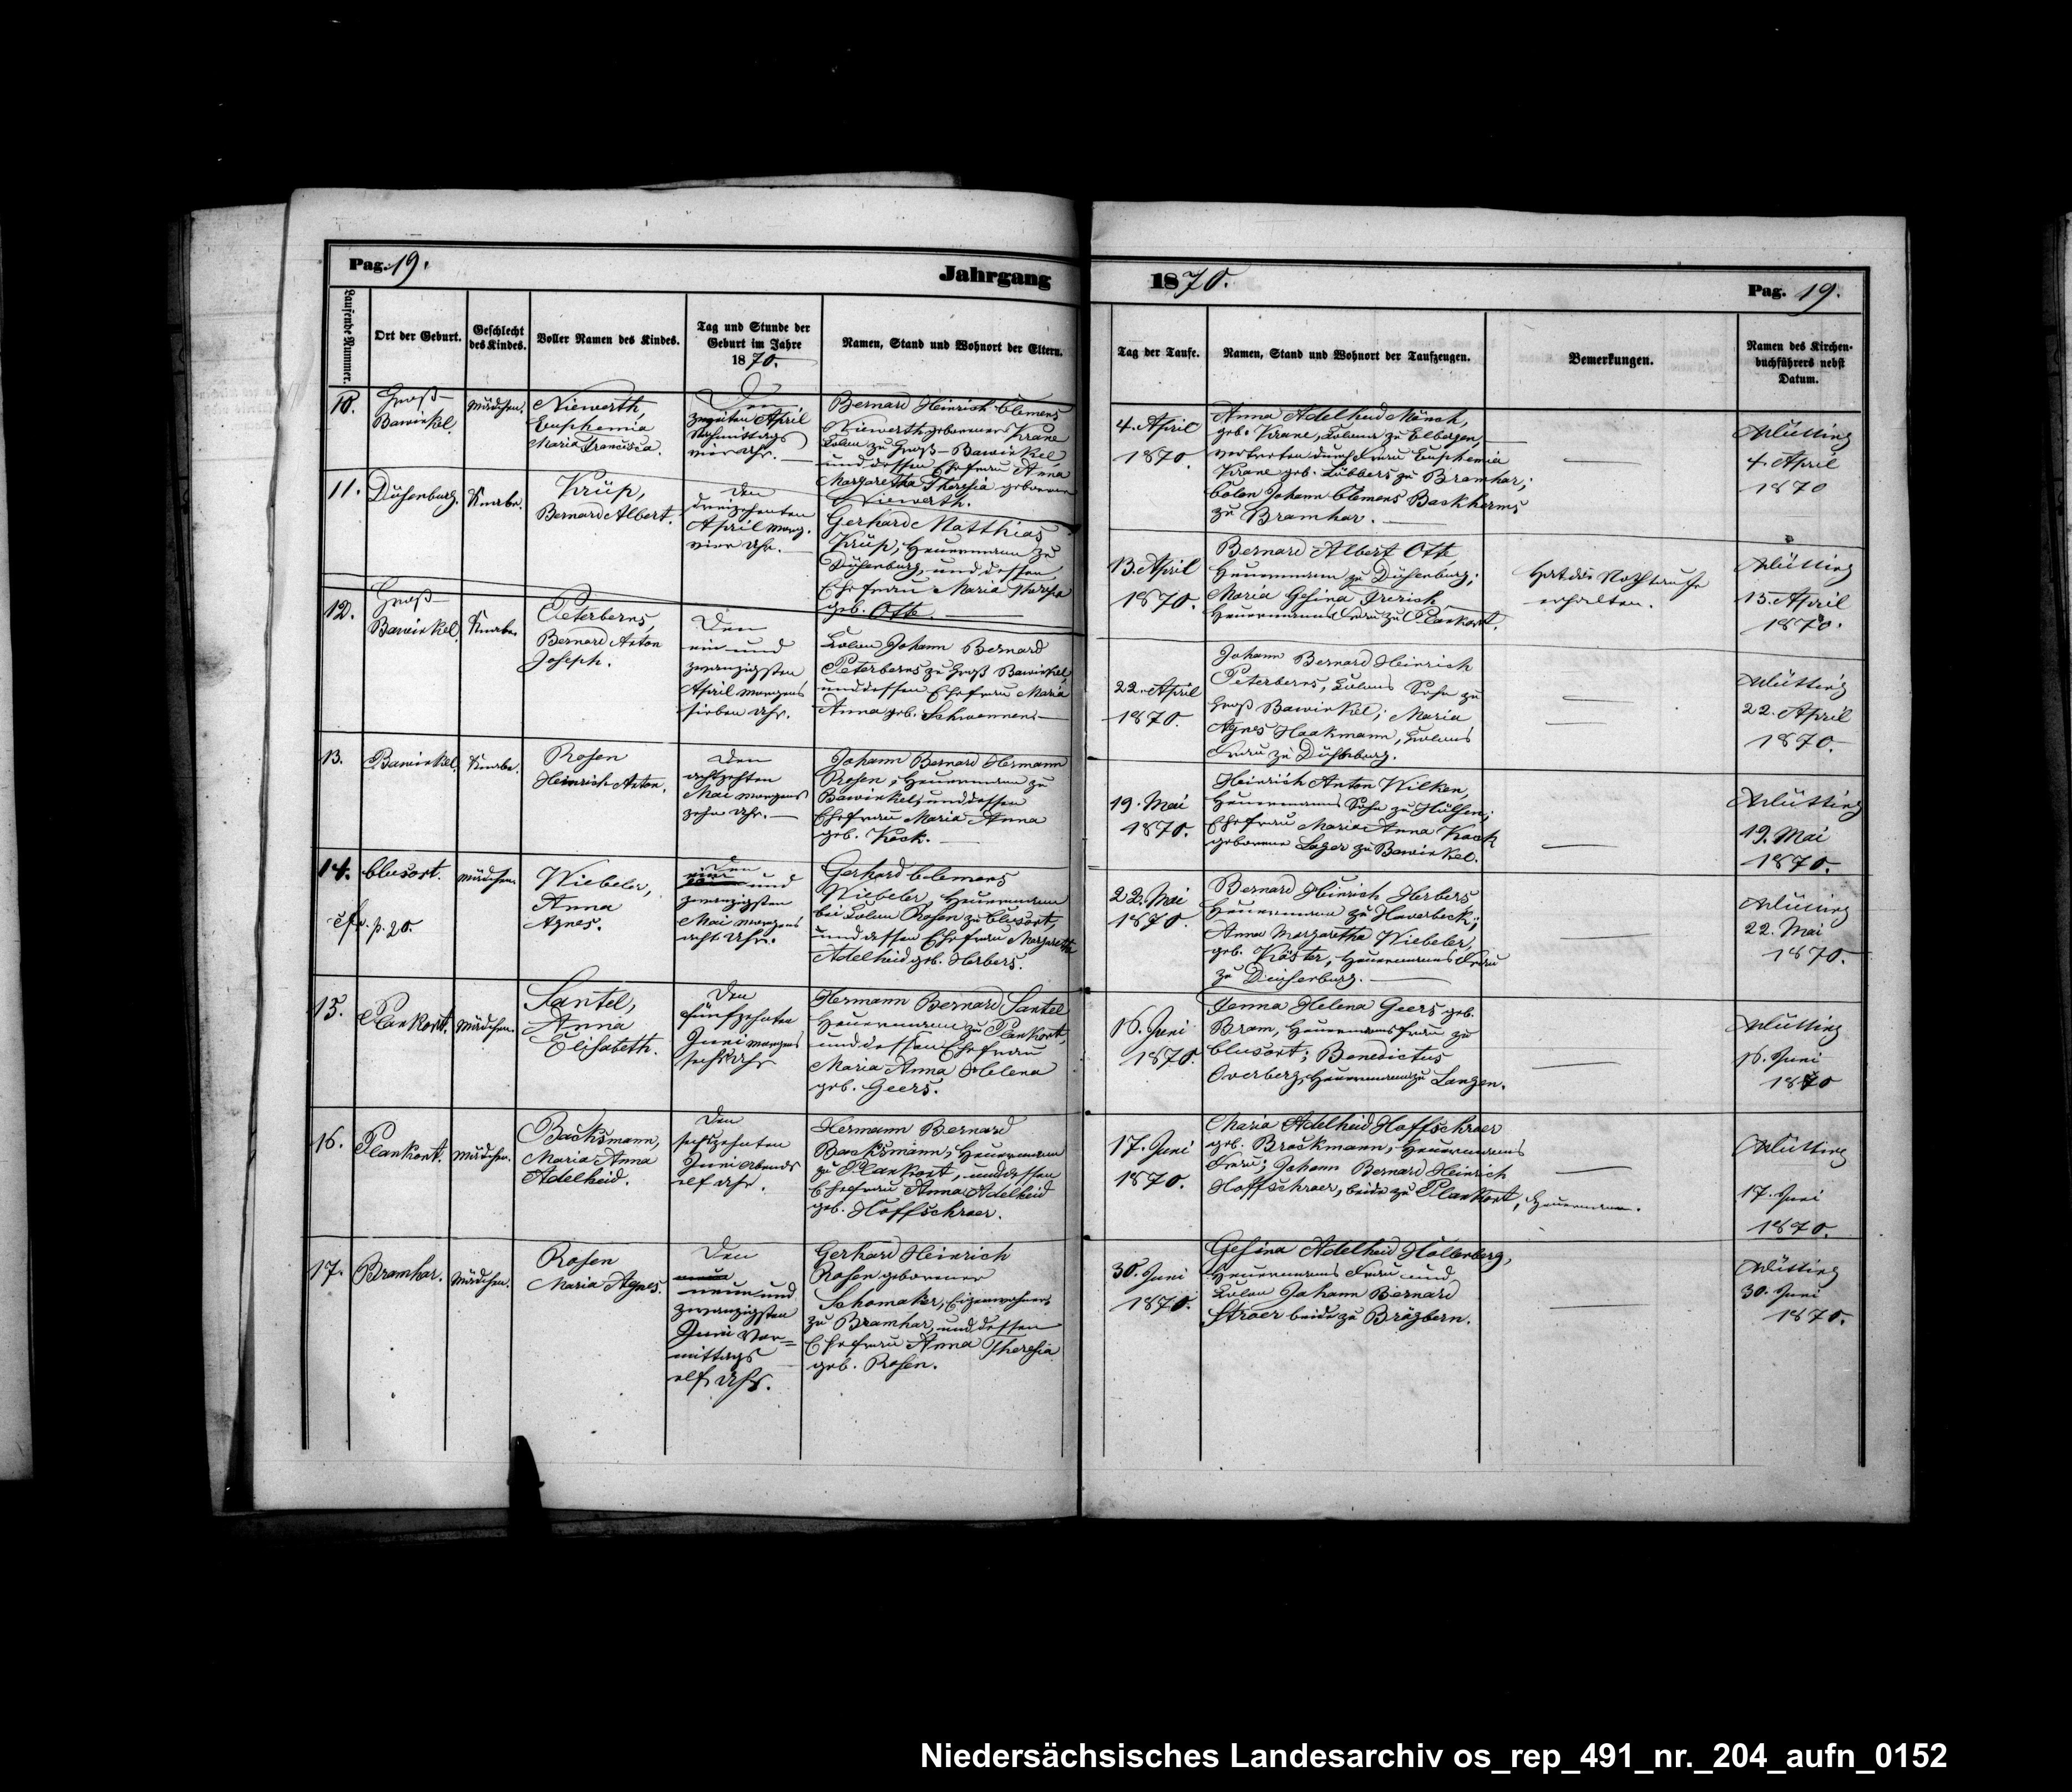 Pag. 19.
Jahrgang
1870.
Pag. 19.
Laufende Nummer.
Ort der Geburt.
Geschlecht des Kindes.
Voller Namen des Kindes.
Tag und Stunde der
Geburt im Jahre
1870.
Namen, Stand und Wohnort der Eltern.
Tag der Taufe.
Namen, Stand und Wohnort der Taufzeugen.
Bemerkungen.
Namen des Kirchen-
buchführers nebst
Datum.
10.
Groß-
Bawinkel.
Mädchen.
Niewerth,
Euphemia
Maria Francisca.
Den
zweiten April
Nachmittags
vier Uhr.
Bernard Heinrich Clemens
Niewerth geborener Krane
Colon zu Groß-Bawinkel
und dessen Ehefrau Anna
Margaretha Theresia geborene
Niewerth.
4. April
1870.
Anna Adelheid Mönch,
geb. Krane, Colona zu Elbergen,
vertreten durch Frau Euphemia
Krane geb. Lübbers zu Bramhar;
Colon Johann Clemens Backherms
zu Bramhar.
4. April
1870
11.
Düsenburg.
Knabe.
Krüp,
Bernard Albert.
Den
dreizehnten
April Morg.
vier Uhr.
Gerhard Matthias
Krüp, Heuermann zu
Düsenburg, und dessen
Ehefrau Maria Theresia
geb. Otte.
13. April
1870.
Bernard Albert Otte
Heuermann zu Düsenburg;
Maria Gesina
Heuermanns Frau zu Plankort.
Hat die Nothtaufe
erhalten.
15. April
1870.
12.
Groß-
Bawinkel.
Knabe.
Peterberns,
Bernard Anton
Joseph.
Den
ein und
zwanzigsten
April Morgens
sieben Uhr.
Colon Johann Bernard
Peterberns zu Groß Bawinkel,
und dessen Ehefrau Maria
Anna geb.
22. April
1870.
Johann Bernard Heinrich
Peterberns, Colons Sohn zu
Groß Bawinkel; Maria
Agnes Haakmann, Colons
Frau zu Düsenburg.
22. April
1870.
13.
Bawinkel.
Knabe.
Rosen
Heinrich Anton.
Den
achtzehnten
Mai Morgens
zehn Uhr.
Johann Bernard Hermann
Rosen, Heuermann zu
Bawinkel, und dessen
Ehefrau Maria Anna
geb. Kock.
19. Mai
1870.
Heinrich Anton Wilken,
Heuermanns Sohn zu Hülsen;
Ehefrau Maria Anna Kock
geborene Lager zu Bawinkel.
19. Mai
1870.
14.
Clusort.
Mädchen.
cfr. p. 20.
Wiebeler,
Anna
Agnes.
Den
und
zwanzigsten
Mai Morgens
acht Uhr.
Gerhard Clemens
Wiebeler, Heuermann
bei Colon Rosen zu Clusort,
und dessen Ehefrau Margaretha
Adelheid geb. Herbers.
22. Mai
1870.
Bernard Heinrich Herbers
Heuermann zu Haverbeck;
Anna Margaretha Wiebeler,
geb. Köster, Heuermanns Frau
zu Düsenburg.
22. Mai
1870.
15.
Plankort.
Mädchen.
Santel,
Anna
Elisabeth.
Den
fünfzehnten
Juni Morgens
sechs Uhr
Hermann Bernard Santel
Heuermann zu Plankort,
und dessen Ehefrau
Maria Anna Helena
geb. Geers.
16. Juni
1870.
Jenna Helena Geers geb.
Bram, Heuermanns Frau zu
Clusort; Benedictus
Overberg, Heuermann zu Langen.
16. Juni
1870
16.
Plankort.
Mädchen.
Backsmann,
Maria Anna
Adelheid.
Den
sechszehnten
Juni Abends
elf Uhr.
Hermann Bernard
Backsmann, Heuermann
zu Plankort, und dessen
Ehefrau Anna Adelheid
geb. Hoffschroer.
17. Juni
1870.
Maria Adelheid Hoffschroer
geb. Brockmann, Heuermanns
Frau; Johann Bernard Heinrich
Hoffschroer, beide zu Plankort, Heuermann.
17. Juni
1870.
17.
Bramhar.
Mädchen.
Rosen
Maria Agnes.
Den
neun und
zwanzigsten
Juni Vor-
mittags
elf Uhr.
Gerhard Heinrich
Rosen geborener
Schomaker, Eigenwohner
zu Bramhar, und dessen
Ehefrau Anna Theresia
geb. Rosen.
30. Juni
1870.
Gesina Adelheid Hollenberg,
Heuermanns Frau und
Colon Johann Bernard
Stroer beide zu Brögbern.
30. Juni
1870.
Niedersächsisches Landesarchiv os_rep_491_nr._204_aufn_0152